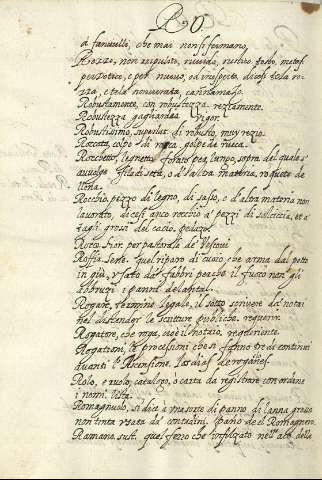 RO
di fanciulli, che mai non si fermano.
Rozzo, non ripulito, ruvido, rustico, tosbo, metaf.
per Potro, e per nuovo, ed inesperto, dicesi tela ro-
zza, e tela non curata, cañamazo.
Robustamente, con robustezza, reziamente.
Robustezza, gagliardia, Vigor.
Robustissimo, superlat. di robusto, muy rezio.
Roccata, colpo di roca, golpe de rueca.
Rocchetto, legnetto forato per lungo, sopra del quale s'
avvolge filo di seta, o d'altra materia, roquete de
llena.
Rocchio, pezzo di legno, di sasso, o d'altra materia non
lavorato, dicesi anco rocchio a' pezzi di salciccia, et a'
tagli grossi del cacio, pedazo.
Roco, fior. per pastorale de' Vescovi
Roffia, Sost. quel riparo di cuoio, che arma dal petto
in giù, usato da' fabbri perche il fuoco non gli
abbruzi i panni, delantal.
Rogare, termine legale, il sotto scrivere de' notai
nel distender le scritture publiche, requerir.
Rogatore, che roga, cioè il notaio, requeriente.
Rogationi, le processioni che si fanno tre di continui
avanti l'Ascensione, las dias de rogaciones.
Rolo, e ruolo, catalogo, o carta da registrare con ordine
i nomi, lista.
Romagnuolo, si dice a una sorte di panno di lana grossa
non tinta usata da' contadini, paño de el Romagnero.
Ramano, sust. quel ferro che infilzato nell'ago della